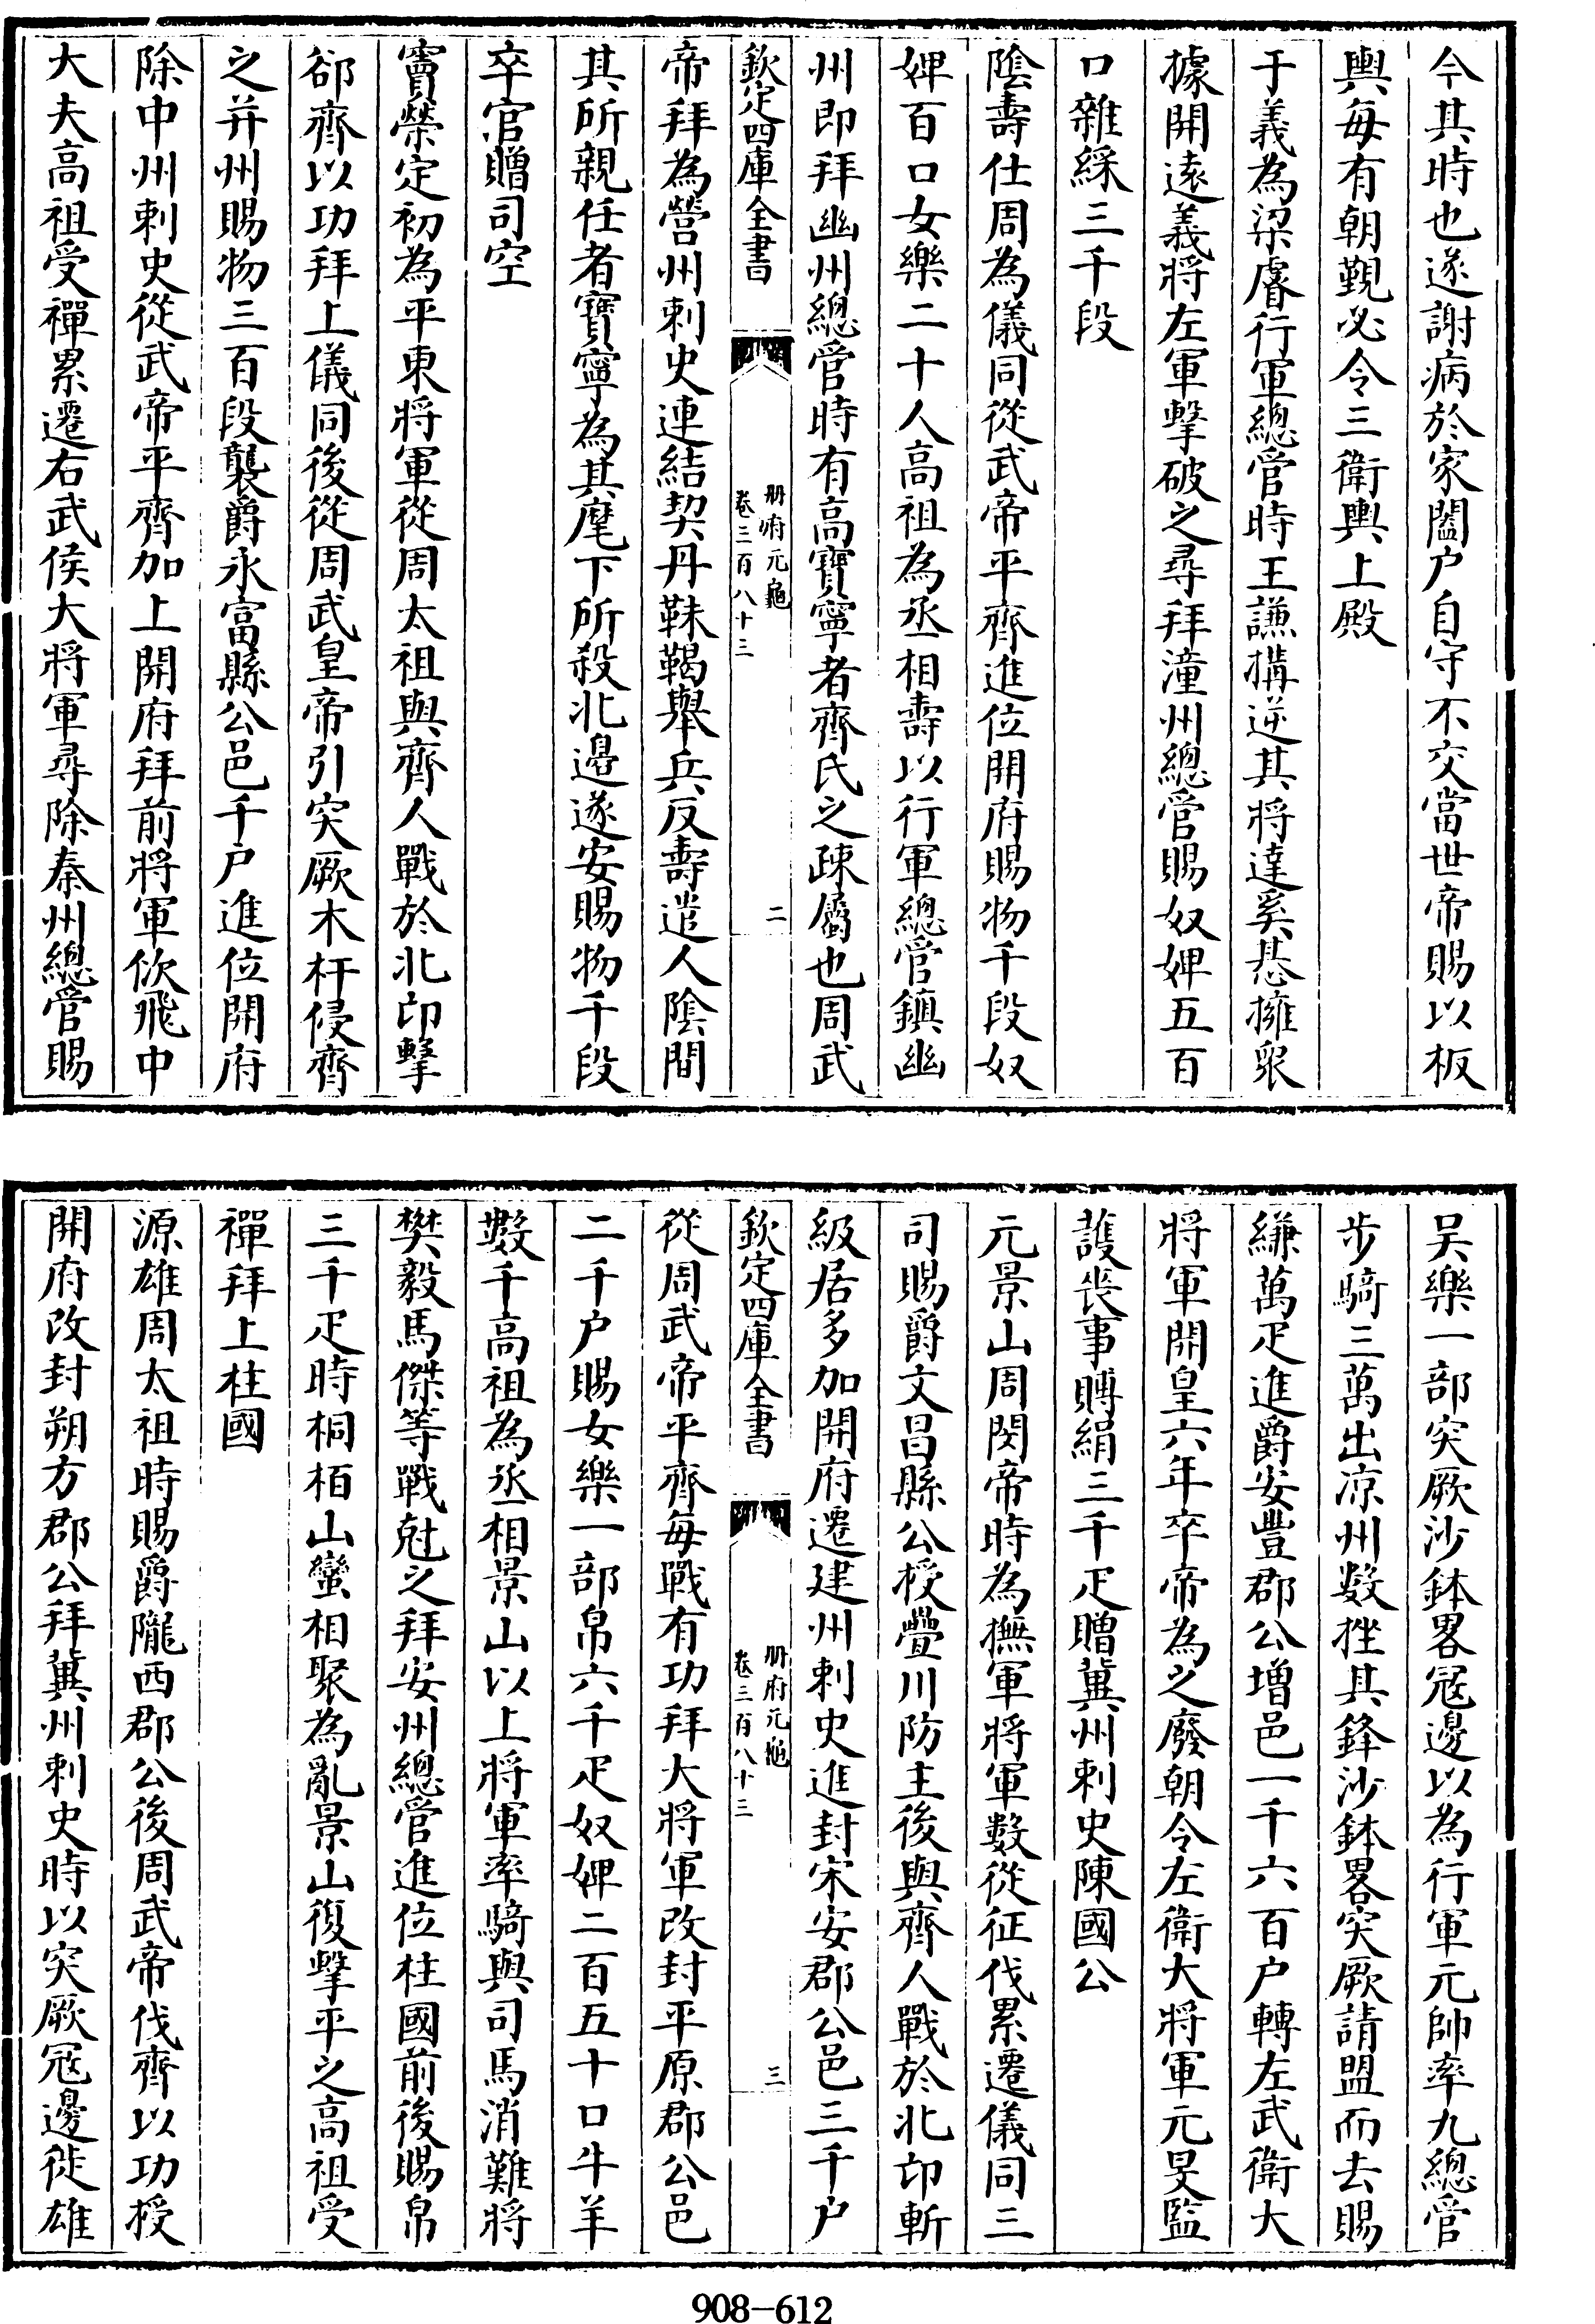 今其時也遂謝病於家闔户自守不交當世帝賜以板
輿每有朝覲必令三衛輿上殿
于義為梁睿行軍總管時王謙搆逆其將達奚惎擁衆
據開遠義將左軍擊破之尋拜潼州總管賜奴婢五百
口雜綵三千段
陰壽仕周為儀同從武帝平齊進位開府賜物千段奴
婢百口女樂二十人高祖為丞相壽以行軍總管鎮幽
州即拜幽州總管時有高寶寧者齊氏之疎屬也周武
欽定四庫全書
册府元龜
卷三百八十三
二
帝拜為營州刺史連結契丹靺鞨舉兵反壽遣人陰間
其所親任者寶寧為其麾下所殺北邊遂安賜物千段
卒官贈司空
竇榮定初為平東將軍從周太祖與齊人戰於北卬擊
郤齊以功拜上儀同後從周武皇帝引突厥木杆侵齊
之并州賜物三百段襲爵永富縣公邑千户進位開府
除中州刺史從武帝平齊加上開府拜前將軍佽飛中
大夫高祖受禪累遷右武侯大將軍尋除秦州總管賜
吴樂一部突厥沙鉢畧冦邊以為行軍元帥率九總管
步騎三萬出凉州數挫其鋒沙鉢畧突厥請盟而去賜
縑萬疋進爵安豐郡公增邑一千六百户轉左武衛大
將軍開皇六年卒帝為之廢朝令左衛大將軍元旻監
護喪事賻絹三千疋贈冀州刺史陳國公
元景山周閔帝時為撫軍將軍數從征伐累遷儀同三
司賜爵文昌縣公授亹川防主後與齊人戰於北卬斬
級居多加開府遷建州刺史進封宋安郡公邑三千户
欽定四庫全書
册府元龜
卷三百八十三
三
從周武帝平齊每戰有功拜大將軍改封平原郡公邑
二千户賜女樂一部帛六千疋奴婢二百五十口牛羊
數千高祖為丞相景山以上將軍率騎與司馬消難將
樊毅馬傑等戰尅之拜安州總管進位柱國前後賜帛
三千疋時桐栢山蠻相聚為亂景山復擊平之高祖受
禪拜上柱國
源雄周太祖時賜爵隴西郡公後周武帝伐齊以功授
開府改封朔方郡公拜冀州刺史時以突厥冦邊徙雄
908-612